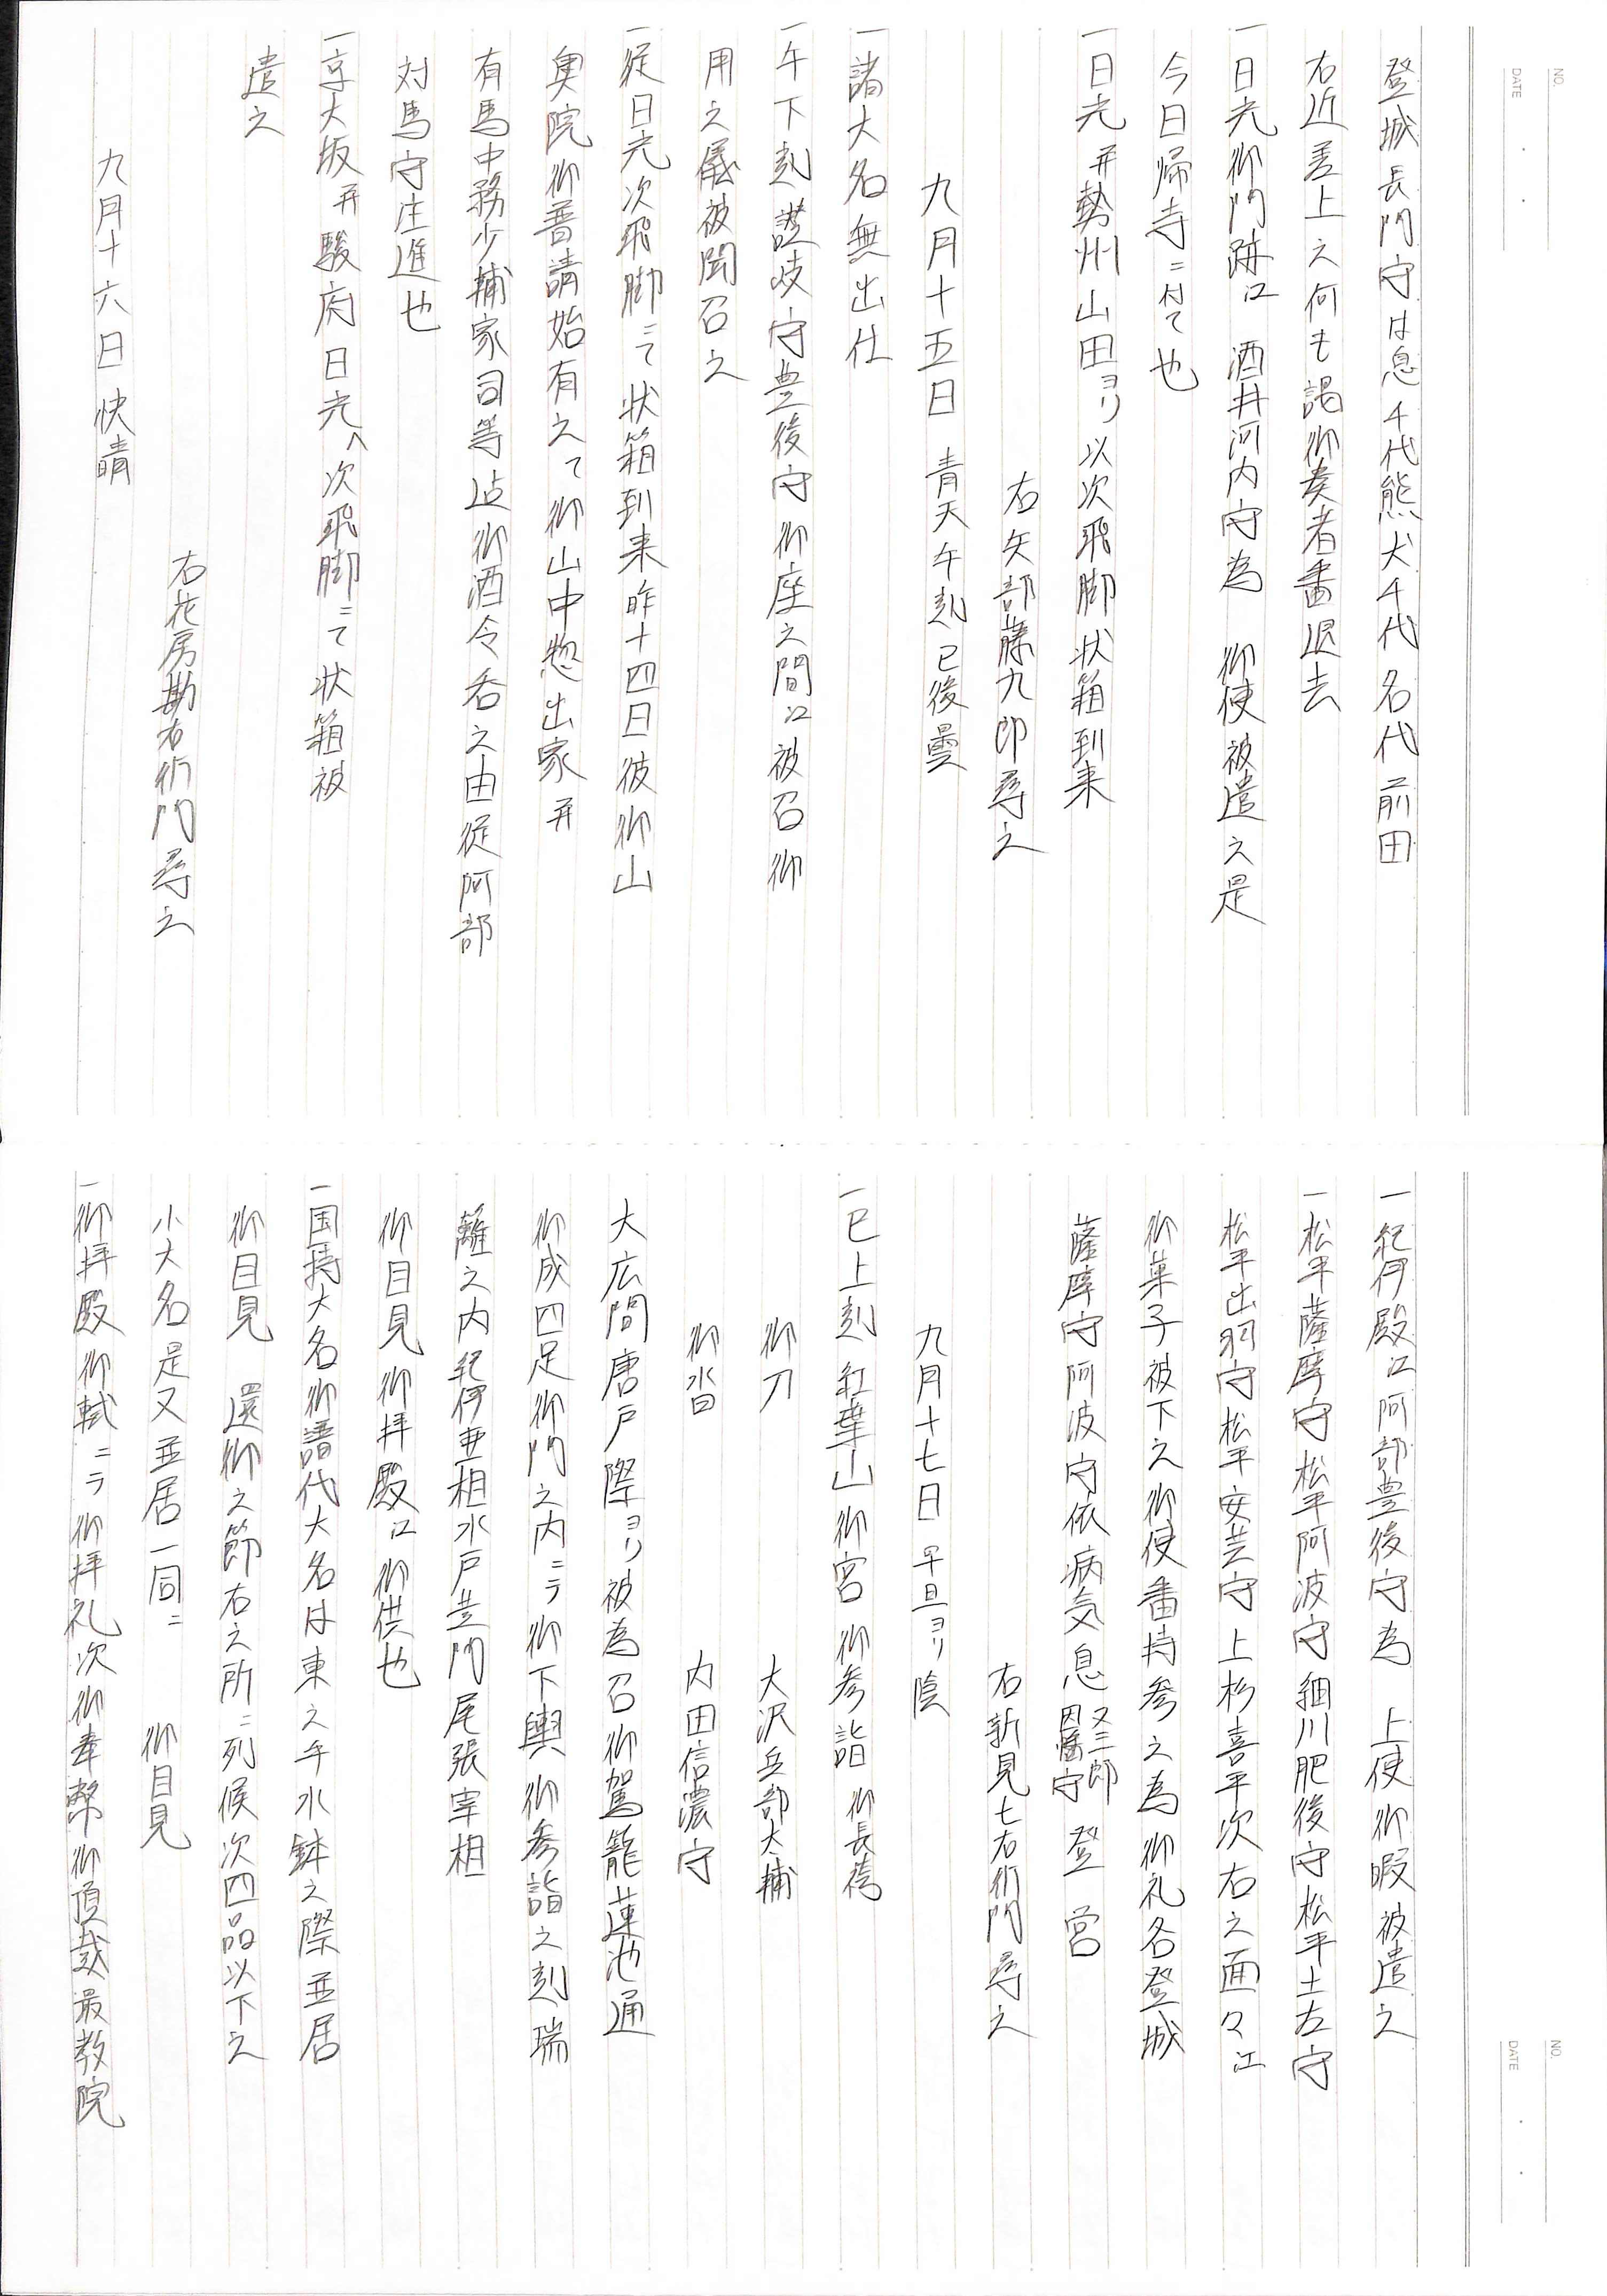 NO.
DATE
登城長門守は息千代熊犬千代名代前田
右近差上之何も謁御奏者番退去
一日光御門跡江　酒井河内守為　御使被遣之是
今日帰寺ニ付て也
一日光并勢州山田ヨリ以次飛脚状箱到来
右矢部藤九郎尋之
九月十五日　青天午刻已後曇
一諸大名無出仕
一午下刻讃岐守豊後守御座之間江被召御
用之儀被聞召之
一従日光次飛脚ニて状箱到来昨十四日彼御山
奥院御普請始有之て御山中惣出家并
有馬中務少輔家司等迄御酒令呑之由従阿部
対馬守注進也
一京大坂并駿府日光へ次飛脚ニて状箱被
遣之
右花房勘右衛門尋之
九月十六日快晴
NO.
DATE
一紀伊殿江阿部豊後守為　上使御暇被遣之
一松平薩摩守松平阿波守細川肥後守松平土左守
松平出羽守松平安芸守上杉喜平次右之面々江
御菓子被下之御使番持参之為御礼各登城
薩摩守阿波守依病気息又三郎因幡守登営
右新見七右衛門尋之
九月十七日早旦ヨリ陰
一巳上刻紅葉山御宮御参詣御長袴
御刀　大沢兵部大輔
御沓　内田信濃守
大広間唐戸際ヨリ被為召御駕籠蓮池通
御成四足御門之内ニテ御下輿御参詣之刻瑞
籬之内紀伊亜相水戸黄門尾張宰相
御目見御拝殿江御供也
一国持大名御譜代大名は東之手水鉢之際並居
御目見　還御之節右之所ニ列候次四品以下之
小大名是又並居一同ニ　御目見
一御拝殿御軾ニテ御拝礼次御奉幣御頂戴最教院